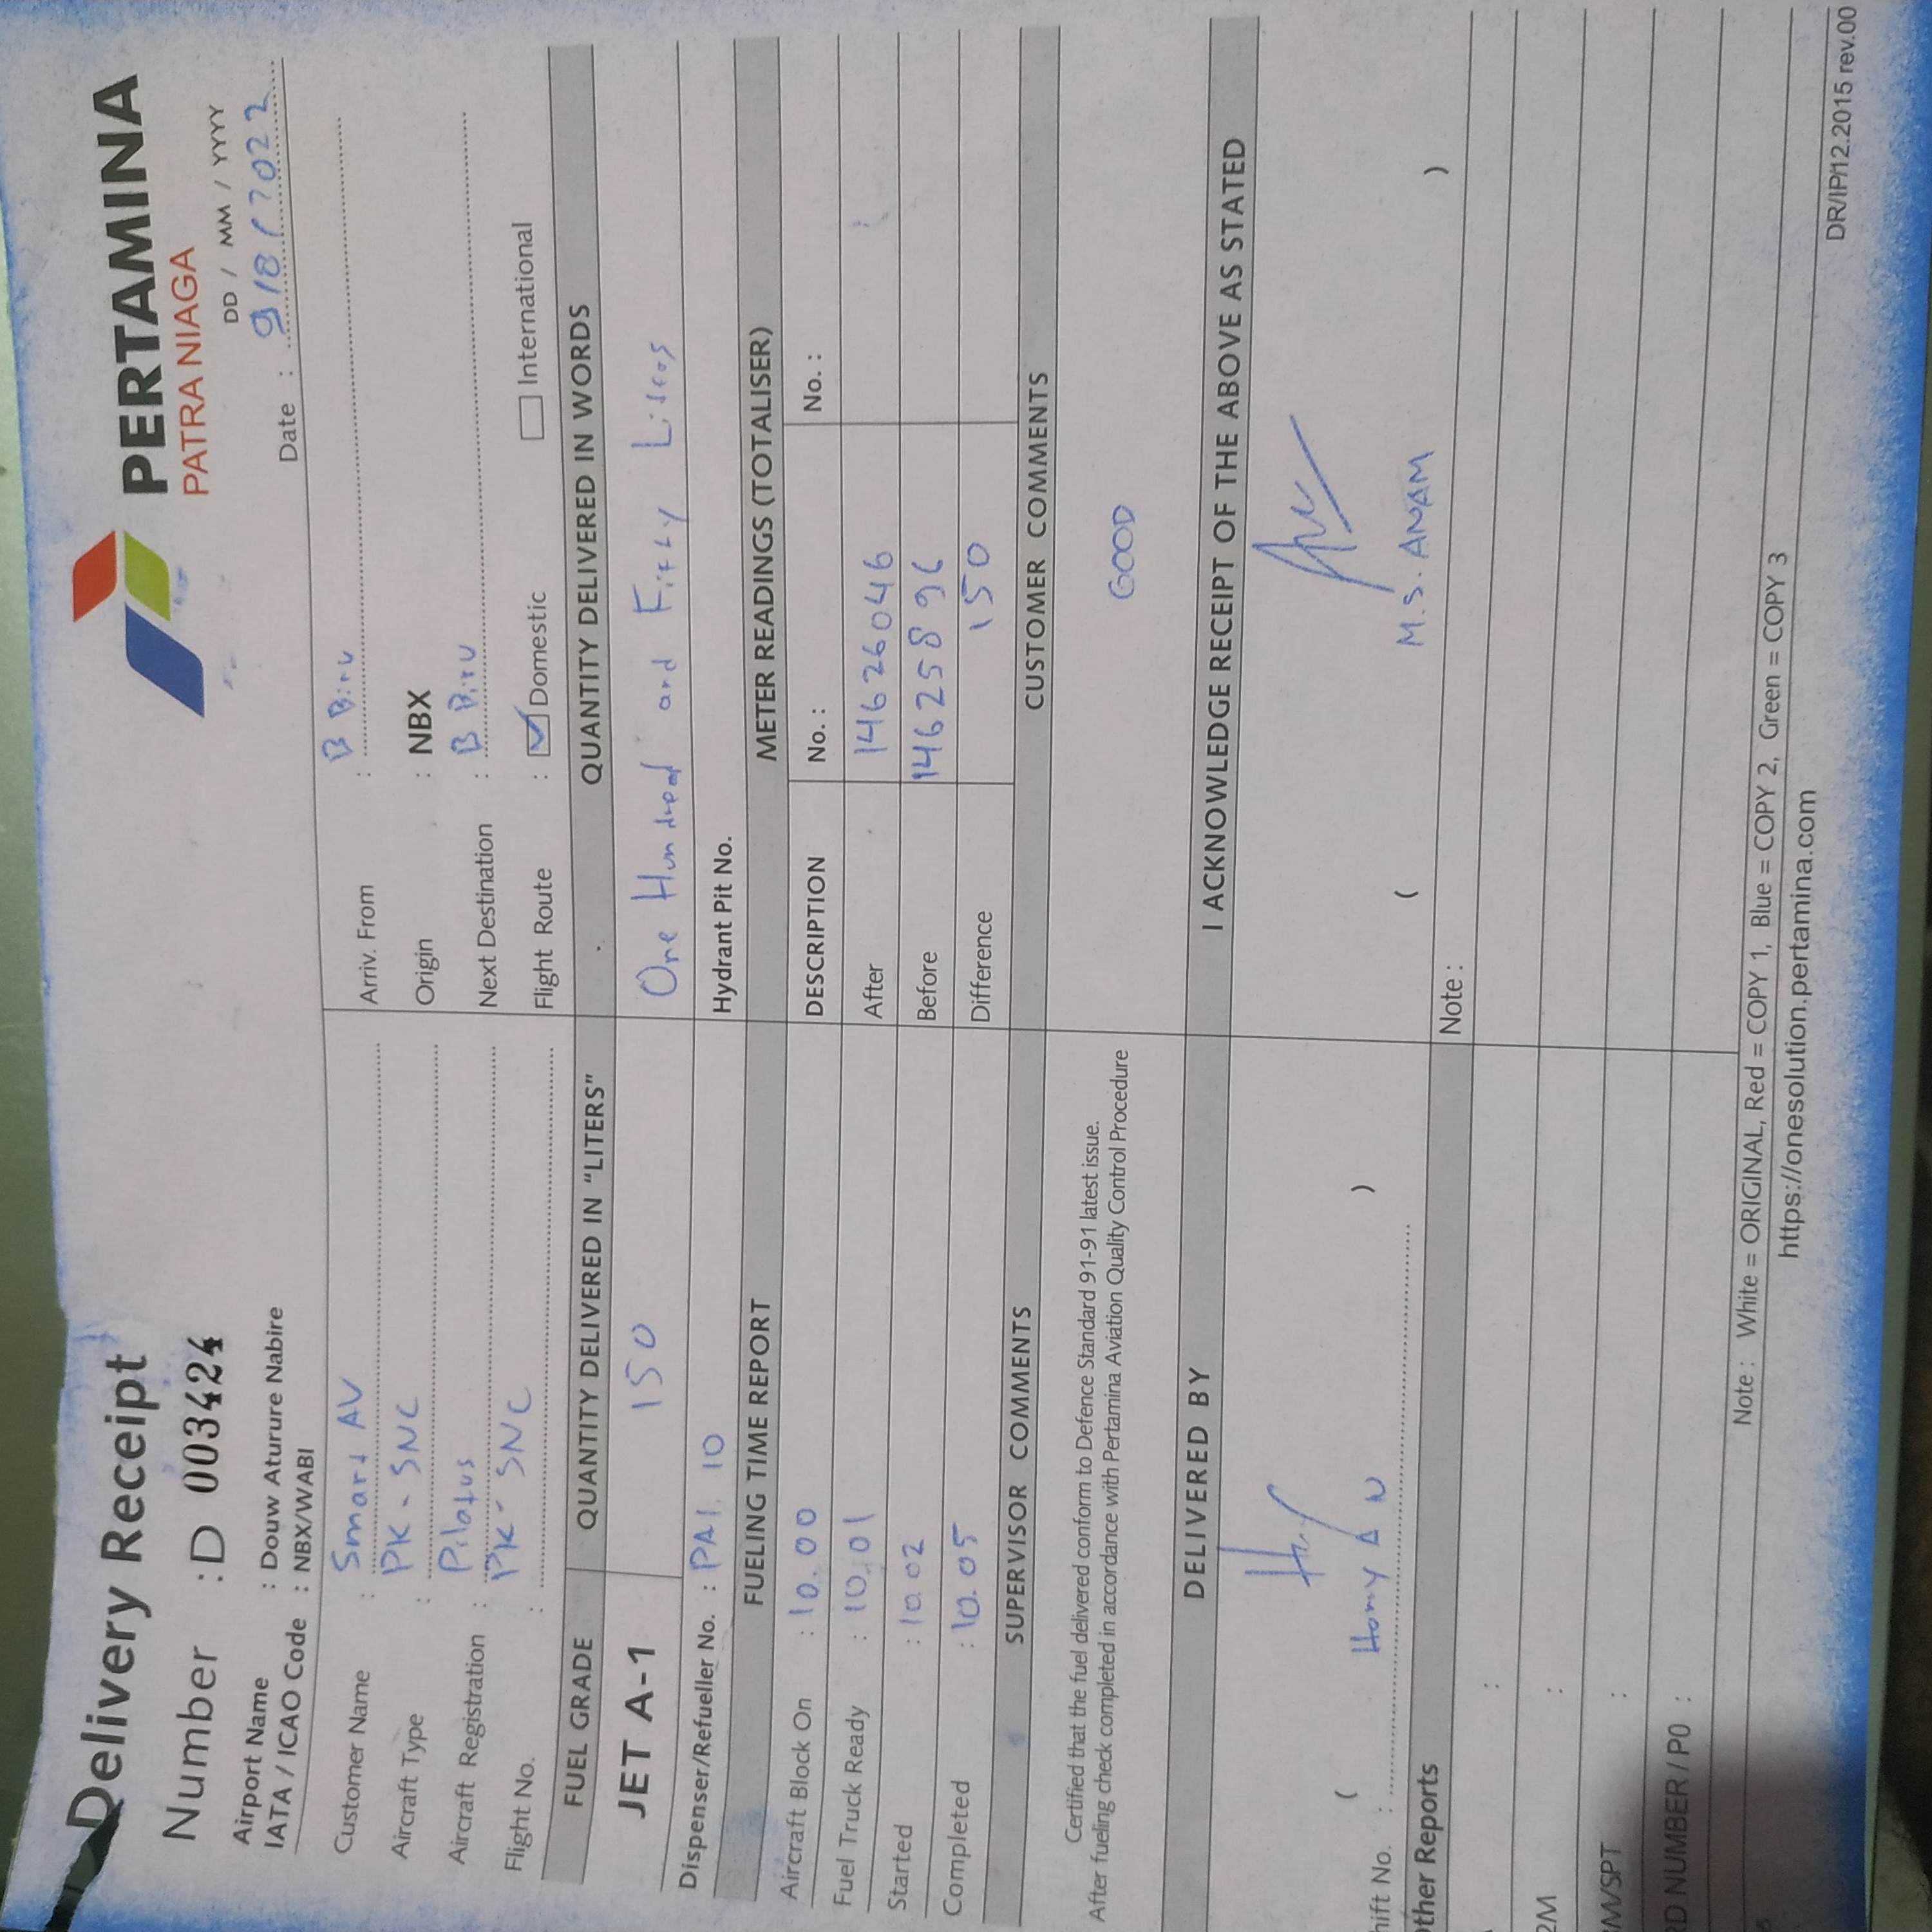 Delivery Receipt
PERTAMINA
PATRA NIAGA
Number : D 003424
DD / MM / YYYY
Airport Name : Douw Aturure Nabire
IATA / ICAO Code : NBX/WABI
Date : 9/8/2022
Customer Name : Smart AV
Arriv. From : B Biru
Aircraft Type : PK - SNC
Origin : NBX
Aircraft Registration : Pilatus
Next Destination : B Biru
Flight No. : PK - SNC
Flight Route : Domestic International
FUEL GRADE QUANTITY DELIVERED IN "LITERS" QUANTITY DELIVERED IN WORDS
JET A-1 150 One Hundred and Fifty Liters
Dispenser/Refueller No. : PAI 10 Hydrant Pit No.
FUELING TIME REPORT METER READINGS (TOTALISER)
Aircraft Block On : 10.00 DESCRIPTION No. : No. :
Fuel Truck Ready : 10.01 After 14626046
Started : 10.02 Before 14625896
Completed : 10.05 Difference 150
SUPERVISOR COMMENTS CUSTOMER COMMENTS
Certified that the fuel delivered conform to Defence Standard 91-91 latest issue.
After fueling check completed in accordance with Pertamina Aviation Quality Control Procedure
GOOD
DELIVERED BY I ACKNOWLEDGE RECEIPT OF THE ABOVE AS STATED
( )
( M.S. ANAM )
hift No. :
ther Reports Note :
:
2M :
M/SPT :
RD NUMBER / PO :
Note : White = ORIGINAL, Red = COPY 1, Blue = COPY 2, Green = COPY 3
https://onesolution.pertamina.com
DR/IP/12.2015 rev.00